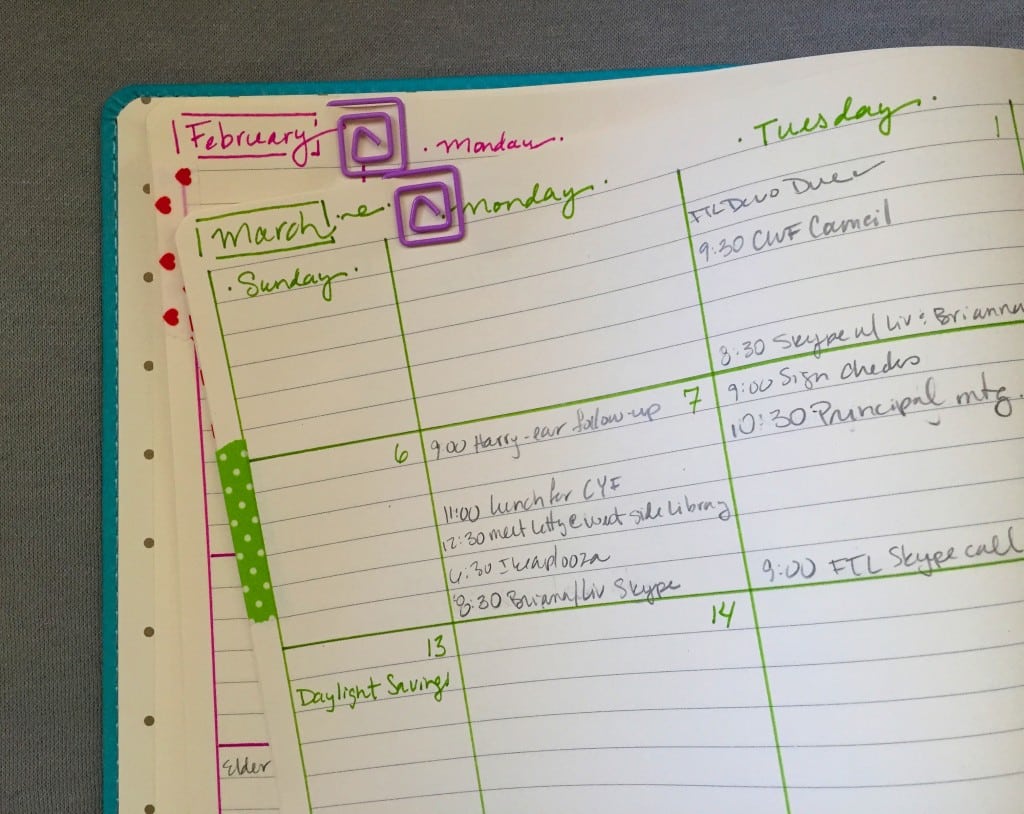 February
. Monday.
. Tuesday.
March
. Monday.
. Sunday.
1
FTL Devo Due
9:30 CWF Council
8:30 Skype w/ Liv & Brianna
6
9:00 Harry-ear follow-up
7
9:00 Sign checks
10:30 Principal mtg.
11:00 Lunch for CYF
12:30 meet Letty @ west side Library
6:30 Ikeaplooza
8:30 Briana/Liv Skype
9:00 FTL Skype call
13
14
Daylight Savings
Elder